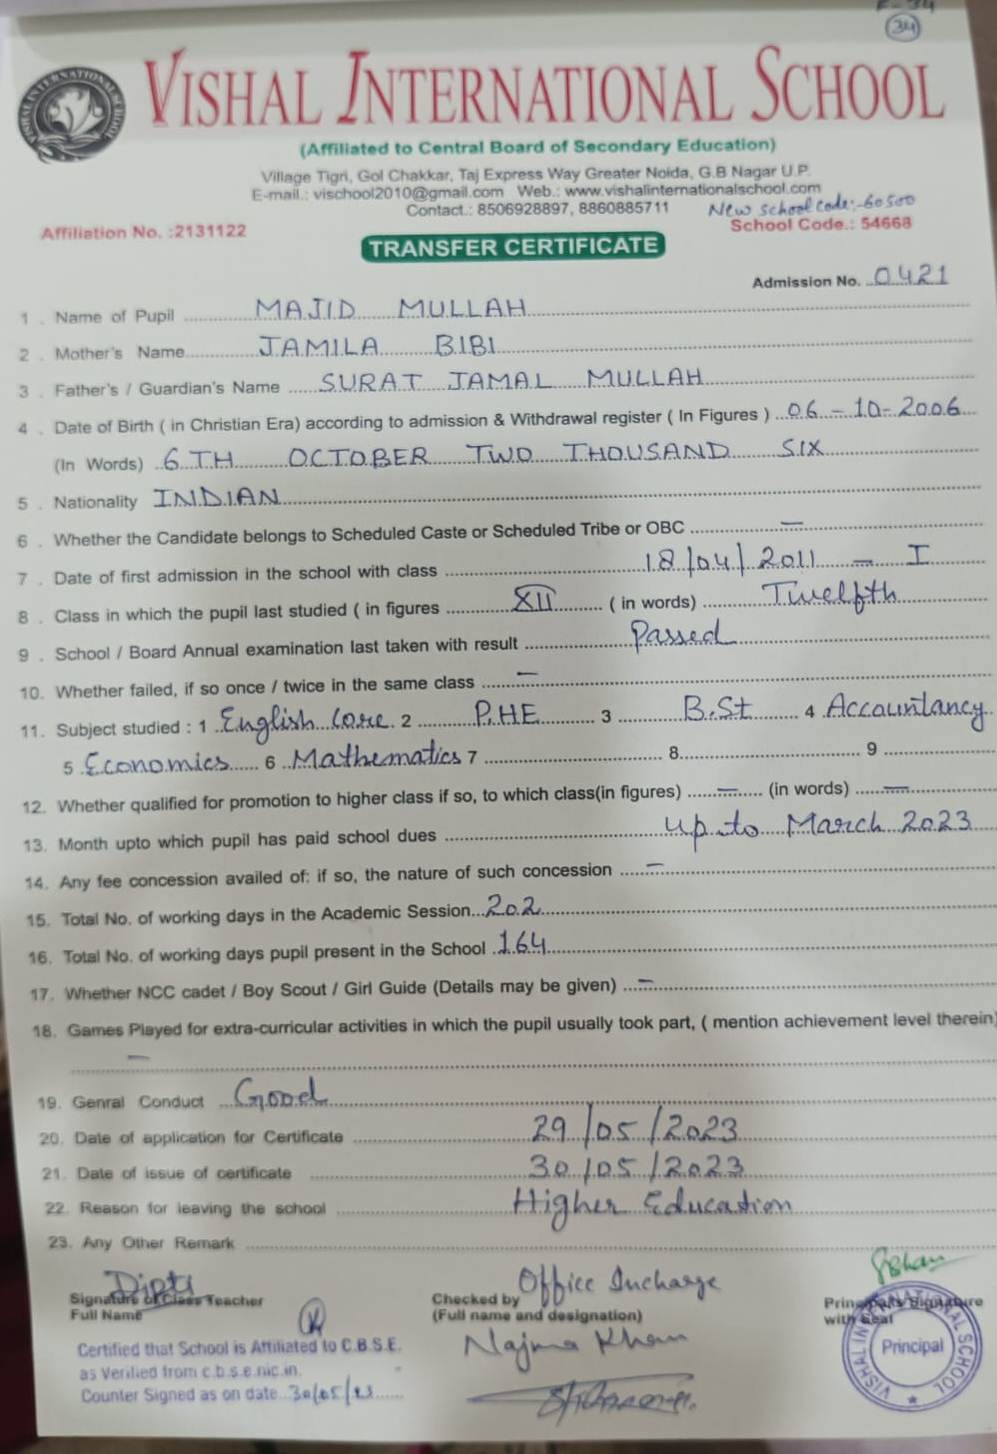 F-34
34
VISHAL INTERNATIONAL SCHOOL
(Affiliated to Central Board of Secondary Education)
Village Tigri, Gol Chakkar, Taj Express Way Greater Noida, G.B Nagar U.P.
E-mail.: vischool2010@gmail.com Web.: www.vishalinternationalschool.com
Contact.: 8506928897, 8860885711 New school code:-60500
Affiliation No. :2131122 School Code.: 54668
TRANSFER CERTIFICATE
Admission No. 0421
1 . Name of Pupil MAJID MULLAH
2 . Mother's Name JAMILA BIBI
3 . Father's / Guardian's Name SURAT JAMAL MULLAH
4 . Date of Birth ( in Christian Era) according to admission & Withdrawal register ( In Figures ) 06-10-2006
(In Words) 6TH OCTOBER TWO THOUSAND SIX
5 . Nationality INDIAN
6 . Whether the Candidate belongs to Scheduled Caste or Scheduled Tribe or OBC —
7 . Date of first admission in the school with class 18/04/2011 — I
8 . Class in which the pupil last studied ( in figures XII ( in words) Twelfth
9 . School / Board Annual examination last taken with result Passed
10. Whether failed, if so once / twice in the same class —
11. Subject studied : 1 English Core 2 P.HE 3 B.St 4 Accountancy
5 Economics 6 Mathematics 7 8 9
12. Whether qualified for promotion to higher class if so, to which class(in figures) — (in words) —
13. Month upto which pupil has paid school dues up to March 2023
14. Any fee concession availed of: if so, the nature of such concession —
15. Total No. of working days in the Academic Session 202
16. Total No. of working days pupil present in the School 164
17. Whether NCC cadet / Boy Scout / Girl Guide (Details may be given) —
18. Games Played for extra-curricular activities in which the pupil usually took part, ( mention achievement level therein)
—
19. Genral Conduct Good
20. Date of application for Certificate 29/05/2023
21. Date of issue of certificate 30/05/2023
22. Reason for leaving the school Higher Education
23. Any Other Remark
Dipti
Signature of Class Teacher
Full Name
Checked by Office Incharge
(Full name and designation)
Najma Khan
Principal's Signature
with Seal
Certified that School is Affiliated to C.B.S.E.
as Verified from c.b.s.e.nic.in.
Counter Signed as on date 30/05/23
VISHAL INTERNATIONAL SCHOOL
Principal